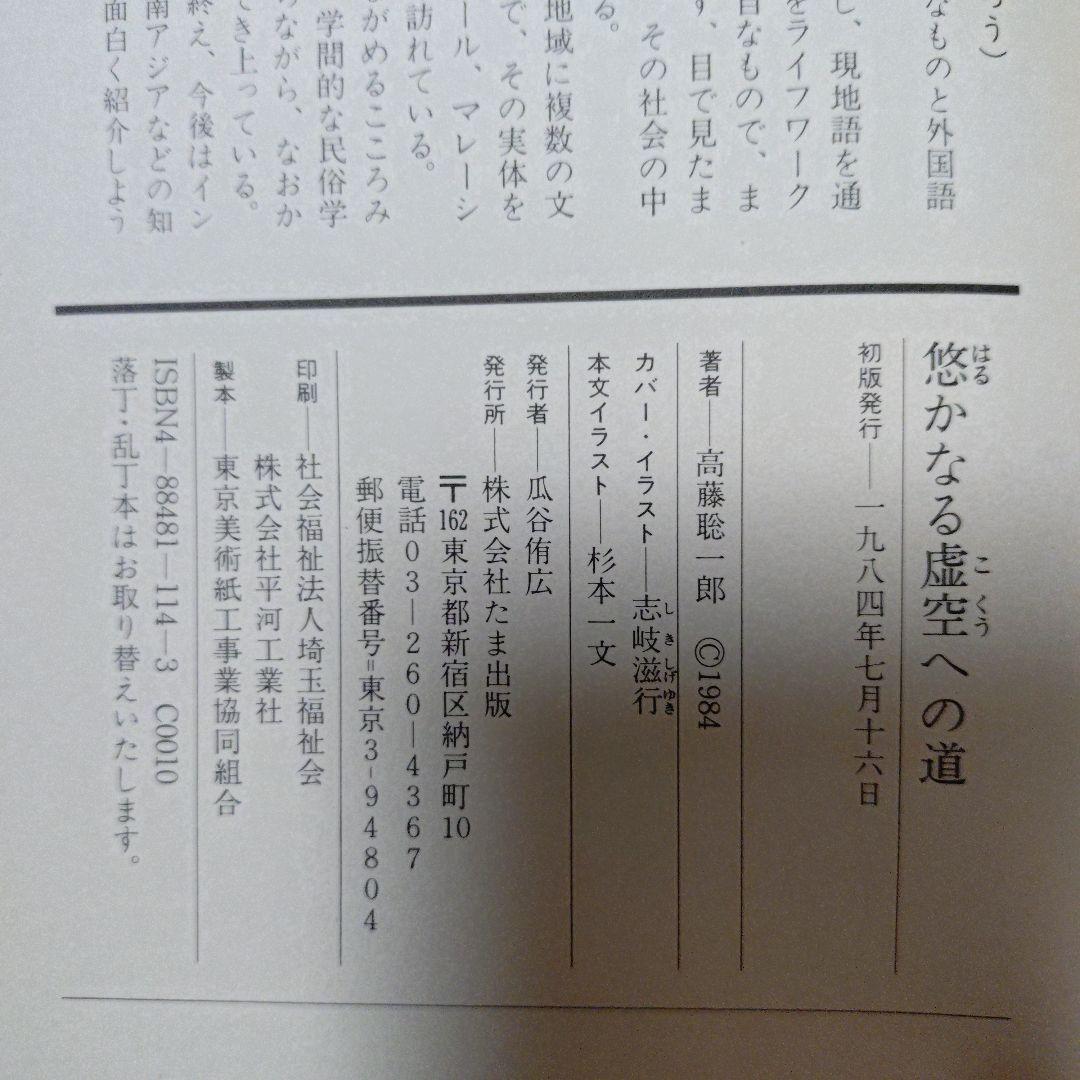 う）
なものと外国語
し、現地語を通
をライフワーク
自なもので、ま
す、目で見たま
その社会の中
る。
地域に複数の文
で、その実体を
ール、マレーシ
訪れている。
がめるこころみ
学問的な民俗学
のながら、なおか
でき上っている。
終え、今後はイン
南アジアなどの知
面白く紹介しよう
悠かなる虚空への道
はる
こくう
初版発行――一九八四年七月十六日
著者――高藤聡一郎 ©1984
カバー・イラスト――志岐滋行
しきしげゆき
本文イラスト――杉本一文
発行者――瓜谷侑広
発行所――株式会社たま出版
〒162東京都新宿区納戸町10
電話03―260―4367
郵便振替番号=東京3-94804
印刷――社会福祉法人埼玉福祉会
株式会社平河工業社
製本――東京美術紙工事業協同組合
ISBN4―88481―114―3 C0010
落丁・乱丁本はお取り替えいたします。